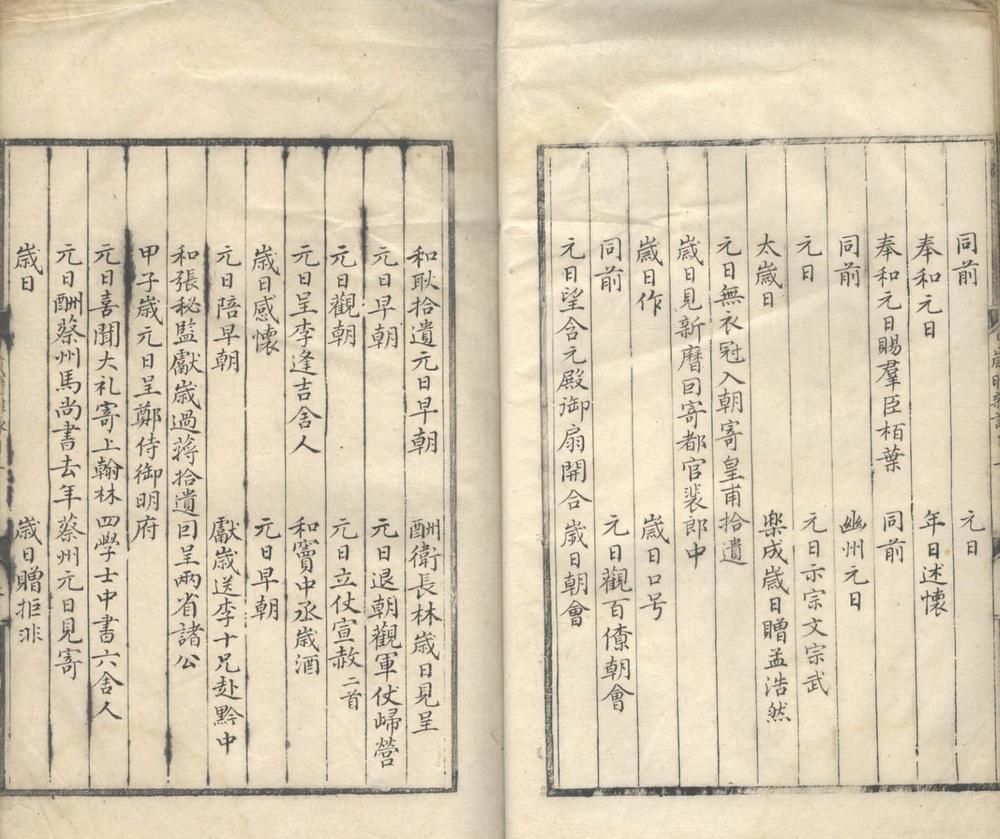 同前 元日
奉和元日 年日述懷
奉和元日賜羣臣栢葉 同前
同前 幽州元日
元日 元日示宗文宗武
太歲日 楽成歲日贈孟浩然
元日無衣冠入朝寄皇甫拾遺
歲日見新曆囙寄都官裴郎中
歲日作 歲日口号
同前 元日觀百僚朝會
元日望含元殿御扇開合 歲日朝會
和耿拾遺元日早朝 酬衛長林歲日見呈
元日早朝 元日退朝觀軍仗㱕營
元日觀朝 元日立仗宣赦二首
元日呈李逢吉舍人 和竇中丞歲酒
歲日感懷 元日早朝
元日陪早朝 獻歲送李十兄赴黔中
和張秘監獻歲過蔣拾遺囙呈兩省諸公
甲子歲元日呈鄭侍御明府
元日喜聞大礼寄上翰林四學士中書六舍人
元日酬蔡州馬尚書去年蔡州元日見寄
歲日 歲日贈拒非